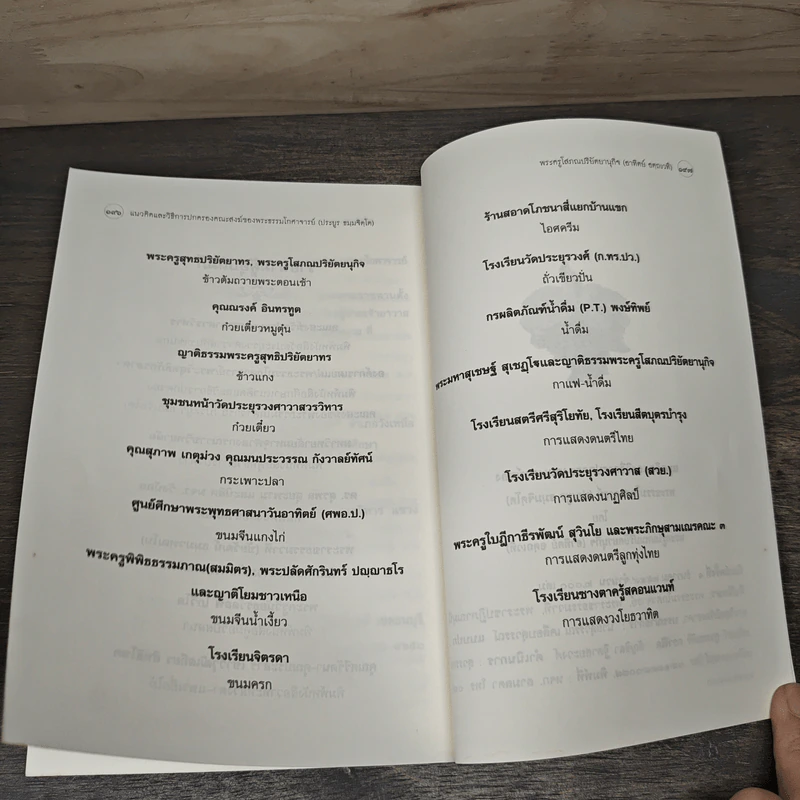 ๑๔๖ แนวคิดและวิธีการปกครองคณะสงฆ์ของพระธรรมโกศาจารย์ (ประยูร ธมฺมจิตฺโต)
พระครูสุทธปริยัตยาทร, พระครูโสภณปริยัตยนุกิจ
ข้าวต้มถวายพระตอนเช้า
คุณณรงค์ อินทรทูต
ก๋วยเตี๋ยวหมูตุ๋น
ญาติธรรมพระครูสุทธิปริยัตยาทร
ข้าวแกง
ชุมชนหน้าวัดประยุรวงศาวาสวรวิหาร
ก๋วยเตี๋ยว
คุณสุภาพ เกตุม่วง คุณมนประวรรณ กังวาลย์ทัศน์
กระเพาะปลา
ศูนย์ศึกษาพระพุทธศาสนาวันอาทิตย์ (ศพอ.ป.)
ขนมจีนแกงไก่
พระครูพิพิธธรรมภาณ(สมมิตร), พระปลัดศักรินทร์ ปญฺญาธโร
และญาติโยมชาวเหนือ
ขนมจีนน้ำเงี้ยว
โรงเรียนจิตรดา
ขนมครก
พระครูโสภณปริยัตยานุกิจ (อาทิตย์ ๑๔๗
ร้านสอาดโภชนาสี่แยกบ้านแขก
ไอศครีม
โรงเรียนวัดประยุรวงศ์ (ก.ทร.ปว.)
ถั่วเขียวปั่น
กรผลิตภัณฑ์น้ำดื่ม (P.T.) พงษ์ทิพย์
น้ำดื่ม
พระมหาสุเชษฐ์ สุเชฏฺโฐและญาติธรรมพระครูโสภณปริยัตยานุกิจ
กาแฟ-น้ำดื่ม
โรงเรียนสตรีศรีสุริโยทัย, โรงเรียนสีตบุตรบำรุง
การแสดงดนตรีไทย
โรงเรียนวัดประยุรวงศาวาส (สวย.)
การแสดงนาฏศิลป์
พระครูใบฎีกาธีรพัฒน์ สุวินโย และพระภิกษุสามเณรคณะ ๓
การแสดงดนตรีลูกทุ่งไทย
โรงเรียนซางตาครู้สคอนแวนท์
การแสดงวงโยธวาทิต